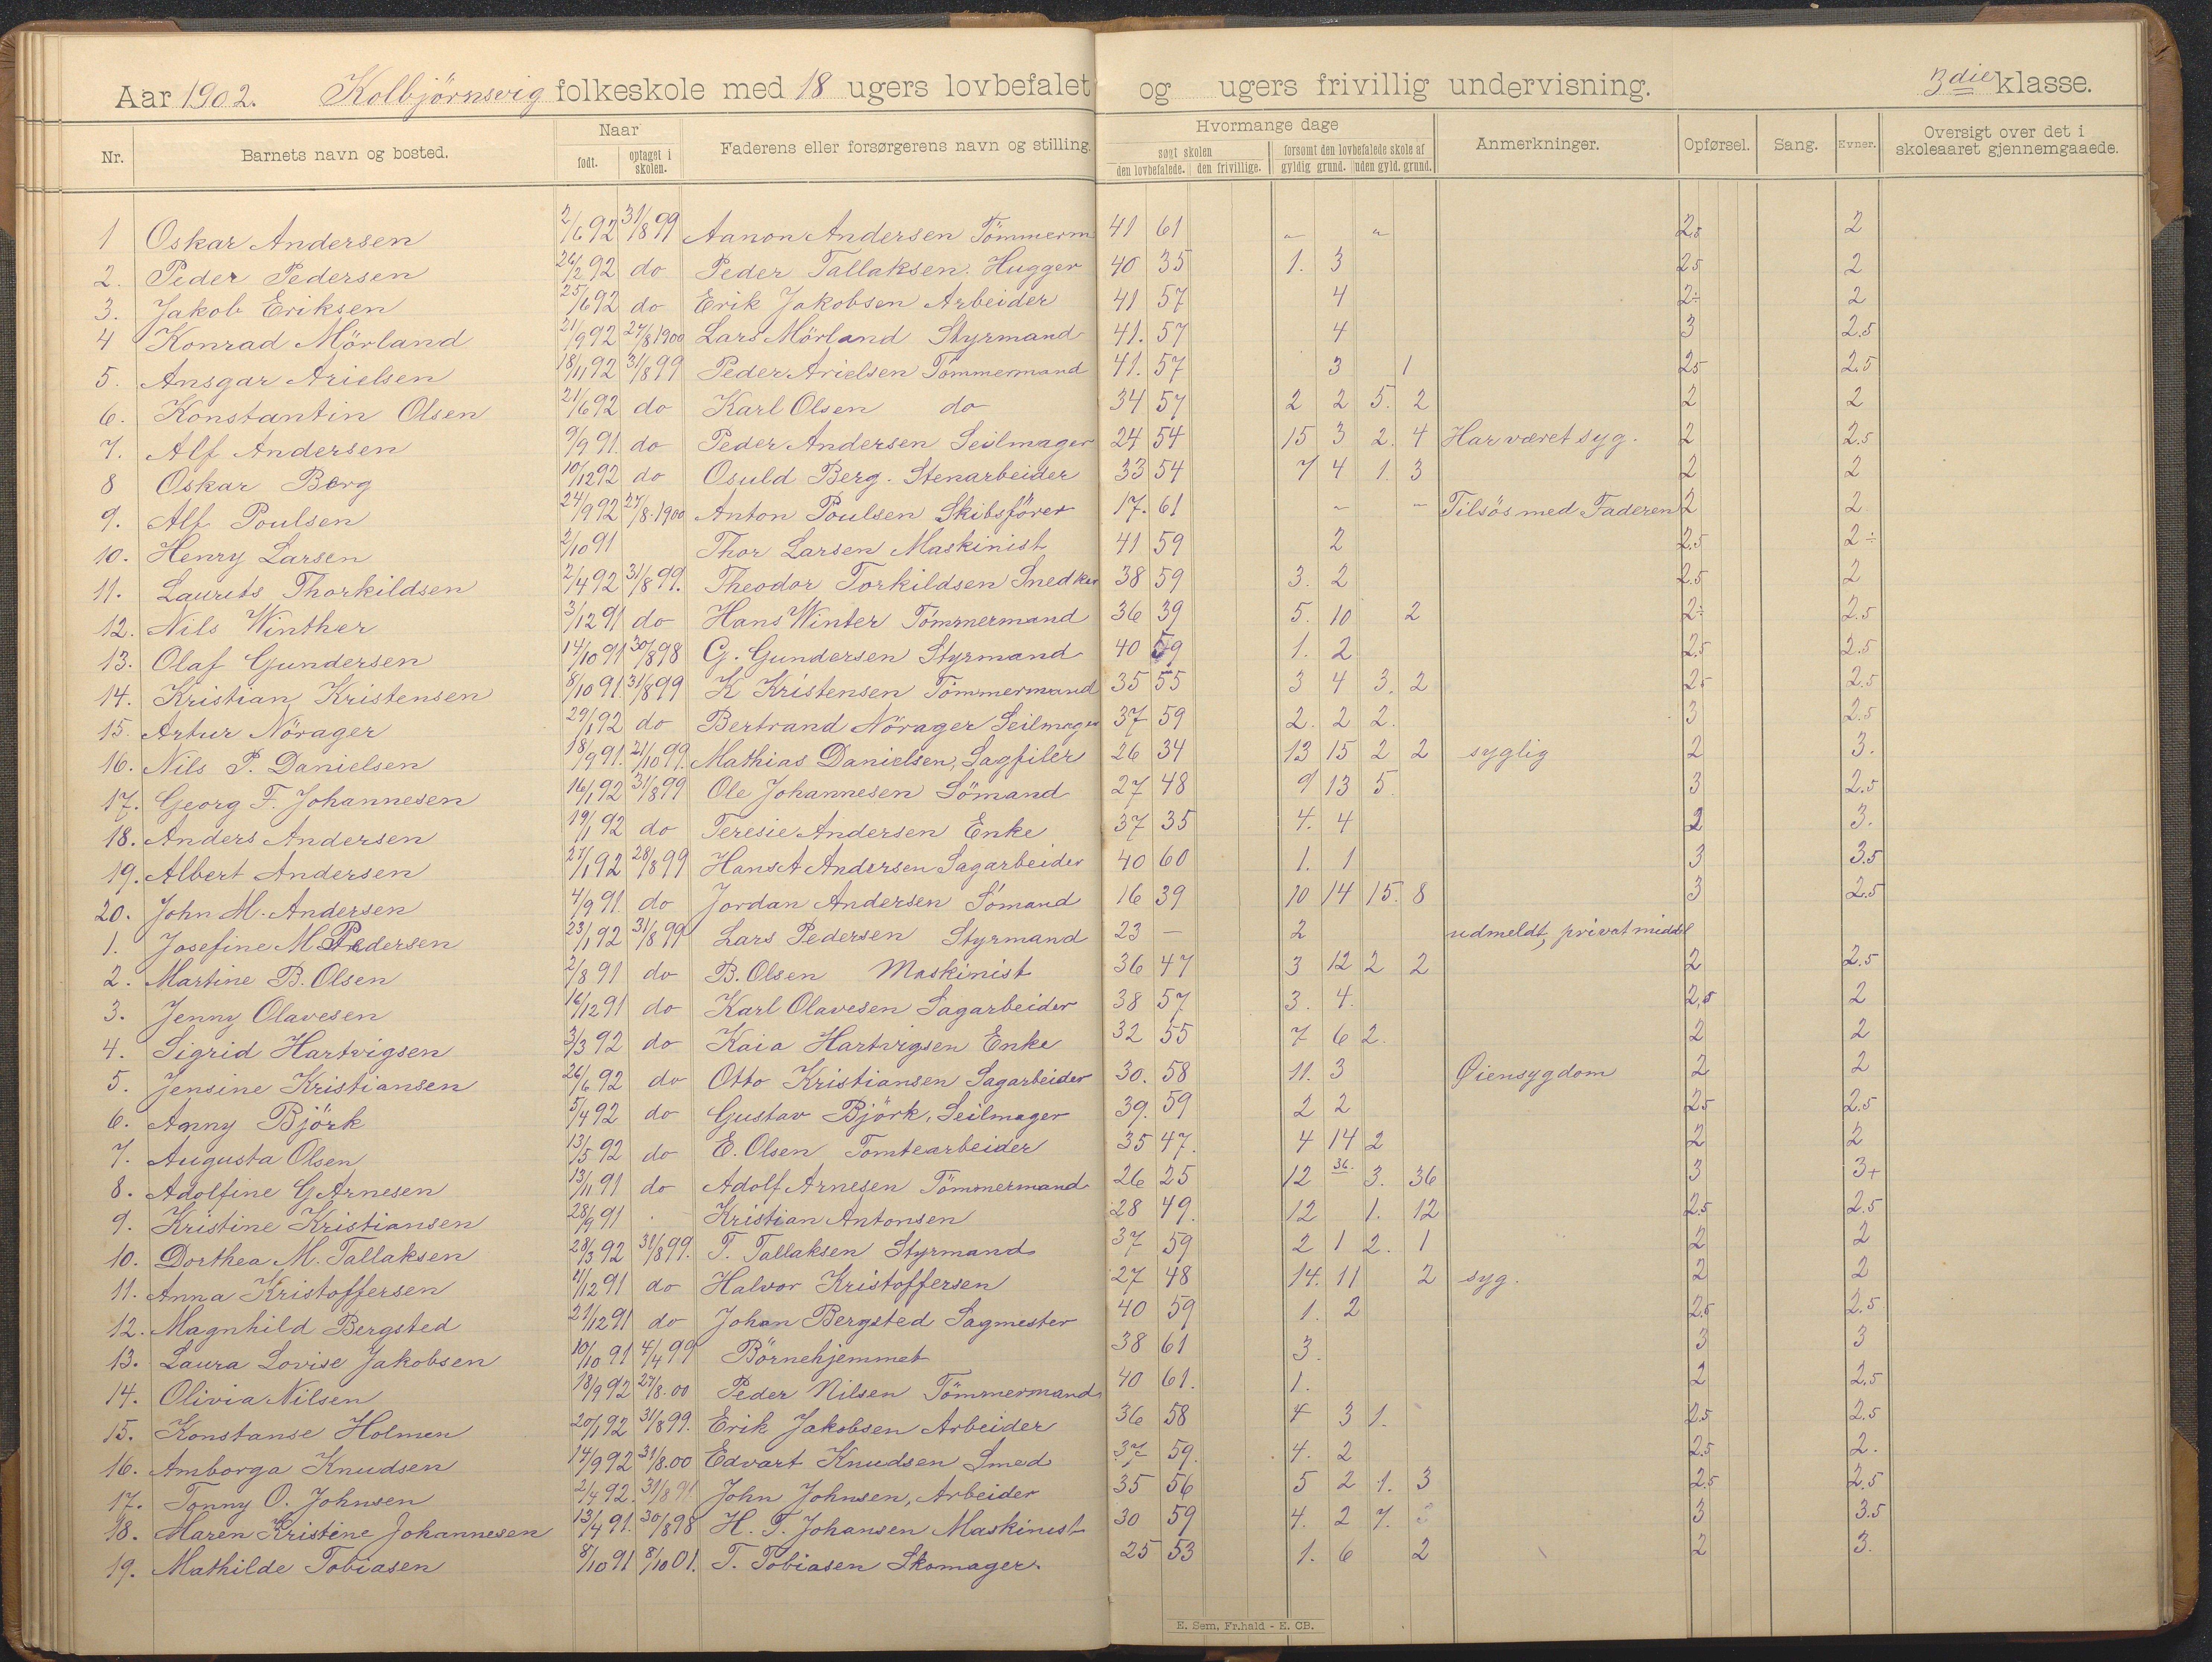 Aar 1902. Kolbjörnsvig folkeskole med 18 ugers lovbefalet og ugers frivillig undervisning. 3die klasse.
Nr. Barnets navn og bosted. Naar født. optaget i skolen. Faderens eller forsørgerens navn og stilling. Hvormange dage søgt skolen den lovbefalede. den frivillige. forsømt den lovbefalede skole af gyldig grund. uden gyld. grund. Anmerkninger. Opførsel. Sang. Evner. Oversigt over det i skoleaaret gjennemgaaede.
1 Oskar Andersen 2/6 92 31/8 99 Aanon Andersen Tömmerm 41 61 " " 2.5 2
2. Peder Pedersen 26/2 92 do Peder Tallaksen. Hugger 40 35 1. 3 2.5 2
3. Jakob Eriksen 25/6 92 do Erik Jakobsen Arbeider 41 57 4 2÷ 2
4 Konrad Mörland 21/9 92 27/8 1900 Lars Mörland Styrmand 41. 57 4 3 2.5
5. Ansgar Arielsen 18/11 92 31/8 99 Peder Arielsen Tömmermand 41. 57 3 1 2.5 2.5
6. Konstantin Olsen 21/6 92 do Karl Olsen do 34 57 2 2 5. 2 2 2
7. Alf Andersen 9/9 91. do Peder Andersen Seilmager 24 54 15 3 2. 4 Har været syg. 2 2.5
8 Oskar Berg 10/12 92 do Osuld Berg. Stenarbeider 33 54 7 4 1. 3 2 2
9. Alf Poulsen 24/9 92 27/8. 1900 Anton Poulsen Skibsförer 17. 61 - - Tilsös med Faderen 2 2
10. Henry Larsen 2/10 91 Thor Larsen Maskinist 41 59 2 2.5 2÷
11. Laurits Thorkildsen 2/4 92 31/8 99. Theodor Torkildsen Snedker 38 59 3. 2 2.5 2
12. Nils Winther 3/12 91 do Hans Winter Tömmermand 36 39 5. 10 2 2÷ 2.5
13. Olaf Gundersen 14/10 91 30/8 98 G. Gundersen Styrmand 40 59 1. 2 2.5 2.5
14. Kristian Kristensen 8/10 91. 31/8 99 K Kristensen Tömmermand 35 55 3 4 3. 2 2.5 2.5
15. Artur Nörager 29/1 92 do Bertrand Nörager Seilmager 37 59 2. 2 2. 3 2.5
16. Nils P. Danielsen 18/9 91. 21/10 99. Mathias Danielsen, Sagfiler 26 34 13 15 2 2 syglig 2 3.
17. Georg F. Johannesen 16/1 92 31/8 99 Ole Johannesen Sömand 27 48 9 13 5. 3 2.5
18. Anders Andersen 19/1 92 do Teresie Andersen Enke 37 35 4. 4 2 3.
19. Albert Andersen 27/1 92 28/8 99 Hans A Andersen Sagarbeider 40 60 1. 1 3 3.5
20. John M. Andersen 4/9 91. do Jordan Andersen Sömand 16 39 10 14 15. 8 3 2.5
1. Josefine M. Pedersen 23/1 92 31/8 99 Lars Pedersen Styrmand 23 – 2 udmeldt, privat middel
2. Martine B. Olsen 2/8 91 do B. Olsen Maskinist 36 47 3 12 2 2 2 2.5
3. Jenny Olavesen 16/12 91 do Karl Olavesen Sagarbeider 38 57 3. 4. 2,5 2
4. Sigrid Hartvigsen 3/3 92 do Kaia Hartvigsen Enke 32 55 7 6 2. 2 2
5. Jensine Kristiansen 26/6 92 do Otto Kristiansen Sagarbeider 30. 58 11. 3 Øiensygdom 2 2
6. Anny Björk 5/4 92 do Gustav Björk, Seilmager 39. 59 2 2 2.5 2.5
7. Augusta Olsen 13/5 92 do E. Olsen Tomtearbeider 35 47. 4 14 2 2 2
8. Adolfine G Arnesen 13/11 91 do Adolf Arnesen Tömmermand 26 25 12 36. 3. 36 3 3+
9. Kristine Kristiansen 28/9 91 . Kristian Antonsen 28 49. 12 1. 12 2.5 2.5
10. Dorthea M. Tallaksen 28/3 92 31/8 99. T. Tallaksen Styrmand 37 59 2 1 2. 1 2 2
11. Anna Kristoffersen 4/12 91 do Halvor Kristoffersen 27 48 14. 11 2 syg. 2 2
12. Magnhild Bergsted 21/12 91 do Johan Bergsted Sagmester 40 59 1. 2 2.5 2.5
13. Laura Lovise Jakobsen 10/10 91 4/4 99 Börnehjemmet 38 61 3. 3 3
14. Olivia Nilsen 18/9 92 27/8. 00 Peder Nilsen Tömmermand 40 61. 1. 2 2.5
15. Konstanse Holmen 20/1 92 31/8 99. Erik Jakobsen Arbeider 36 58 4 3 1. 2.5 2.5
16. Amborga Knudsen 14/9 92 31/8.00 Edvart Knudsen Smed 37 59. 4. 2 2.5 2.
17. Tonny O. Johnsen 2/4 92. 31/8 John Johnsen, Arbeider 35 56 5 2 1. 3 2.5 2.5
18. Maren Kristine Johannesen 13/4 91. 30/8 98 H. T. Johansen Maskinist 30 59 4. 2 7. 3 3.5
19. Mathilde Tobiasen 8/10 91 8/10 01. T. Tobiasen Skomager. 25 53 1. 6 2 2 3.
E. Sem, Fr.hald - E. CB.